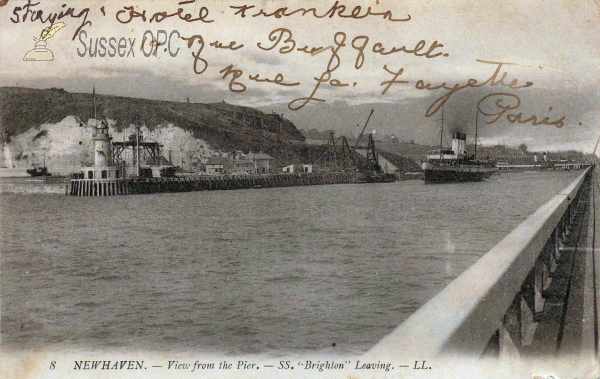 Staying: Hotel Franklin
19 Rue Buffault.
Rue La Fayette
Paris.
Sussex OPC
8 NEWHAVEN. — View from the Pier. — SS. "Brighton" Leaving. — LL.